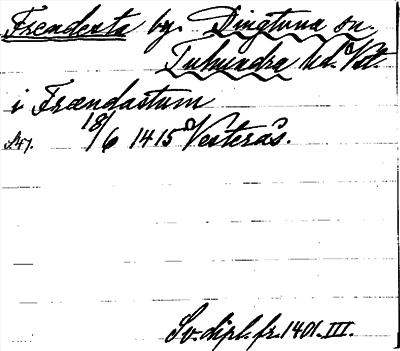 Frendesta by. Dingtuna sn.
Tuhundra hd. Vstm.
i Frændastum
A47. 18/6 1415 Vesterås.
Sv. dipl. fr. 1401. III.